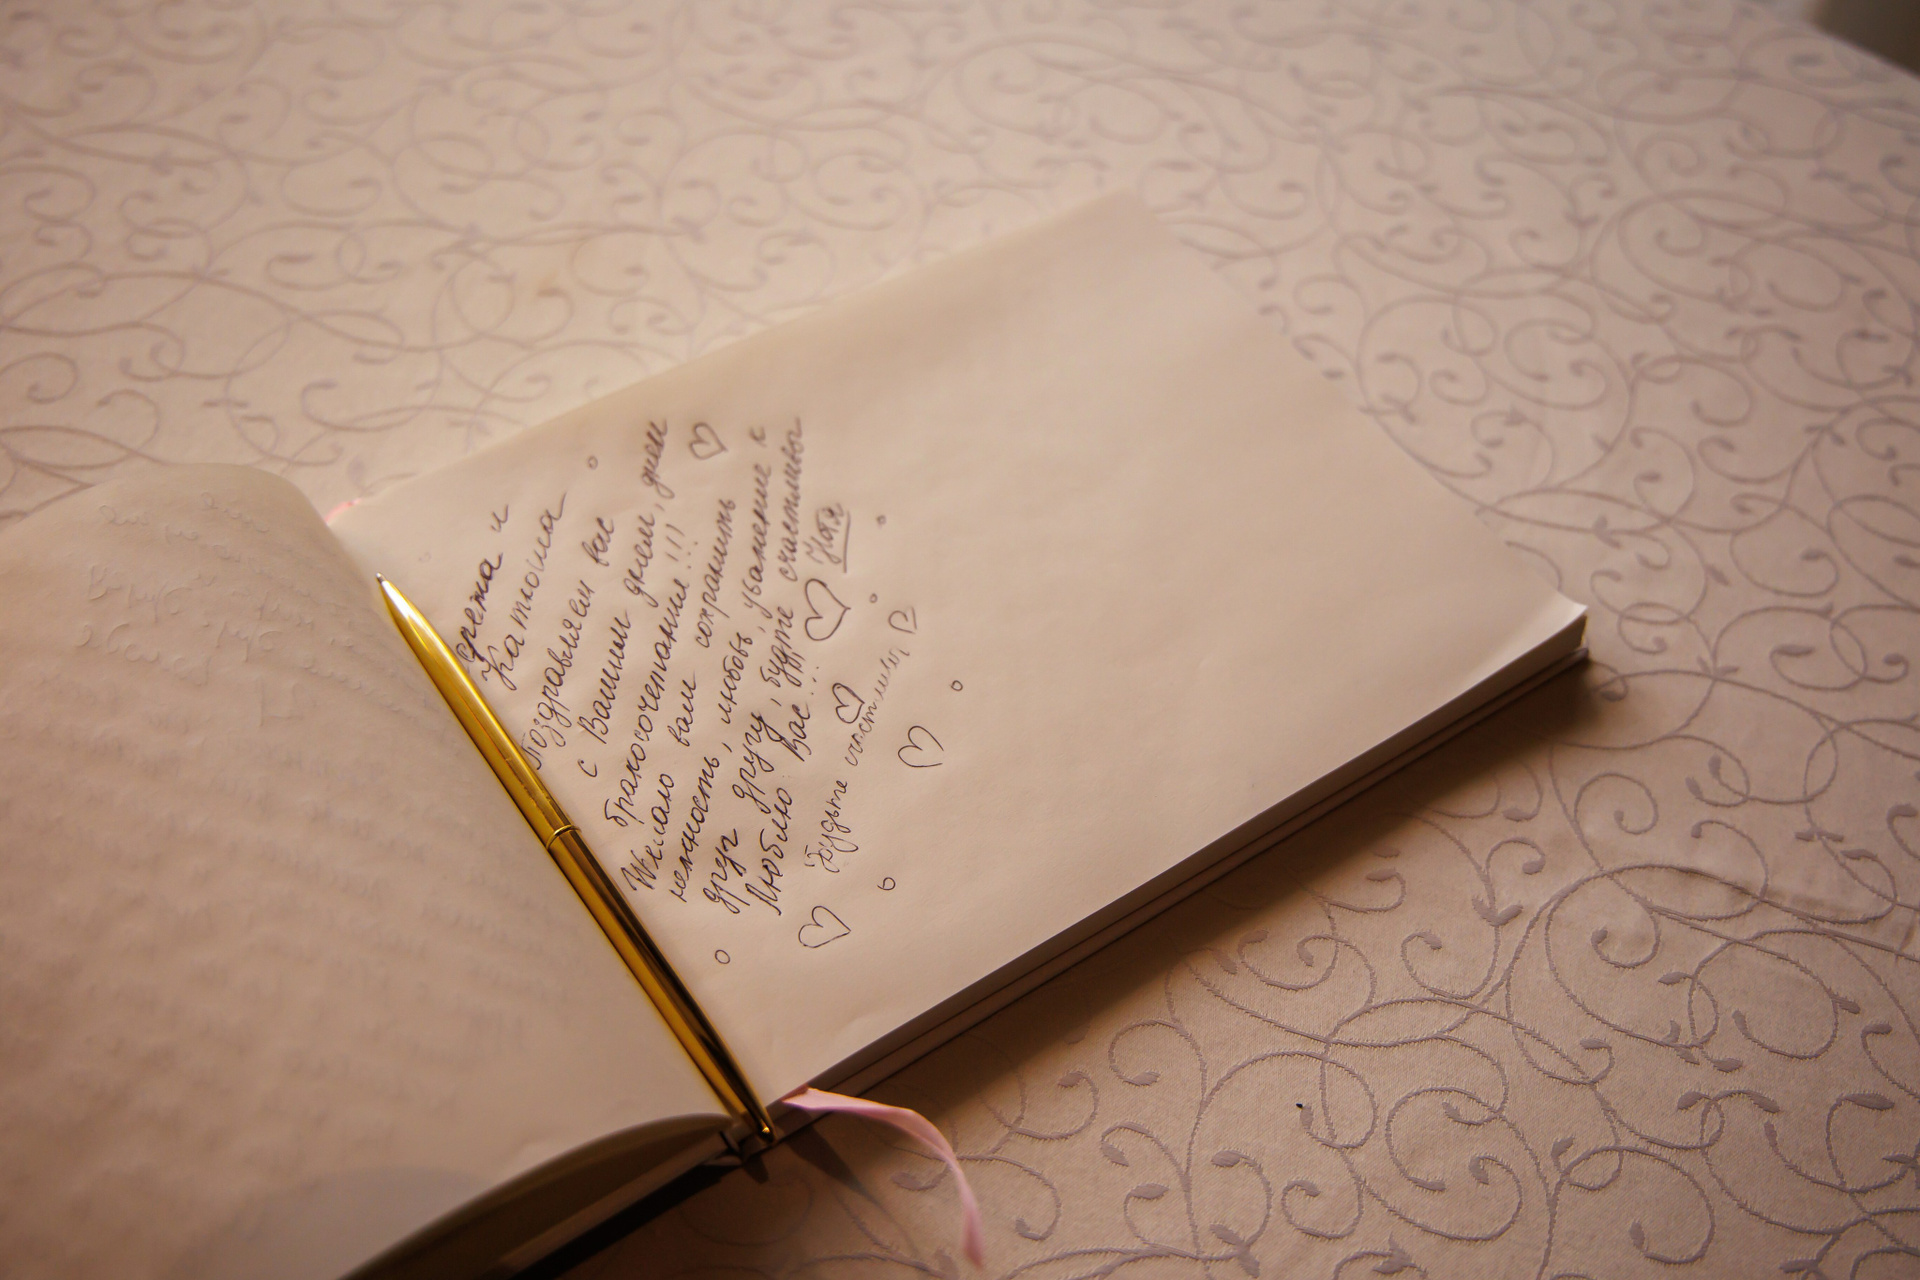 и
Катюша
Поздравляем вас
с Вашим днем, днем
бракосочетания!!!
Желаю вам сохранить
нежность, любовь, уважение к
друг другу, будте счастливы
Люблю Вас...
Будьте счастливы